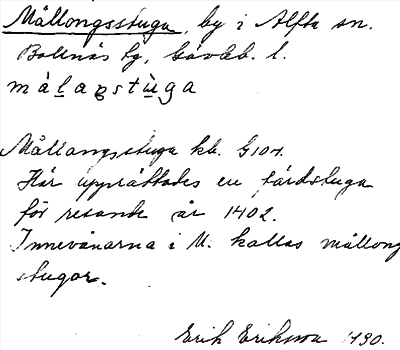 Mållongsstuga, by i Alfta sn.
Bollnäs tg, Gävleb. l.
målaŋstùga
Mållangsstuga kb. G101.
Här upprättades en färdstuga
för resande år 1402.
Innevånarna i M. kallas mållong
stugor.
Erik Eriksson 1930.